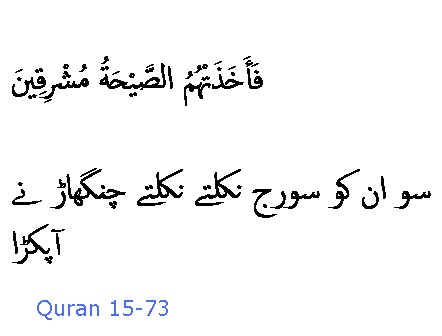 فَأَخَذَتْهُمُ الصَّيْحَةُ مُشْرِقِينَ
سو ان کو سورج نکلتے نکلتے چنگھاڑ نے
آپکڑا
Quran 15-73